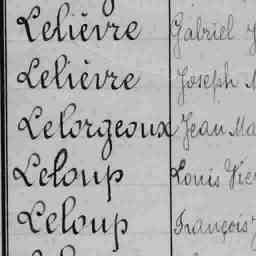 Lelièvre Gabriel
Lelièvre Joseph
Lelorgeoux Jean Ma
Leloup Louis Vic
Leloup François